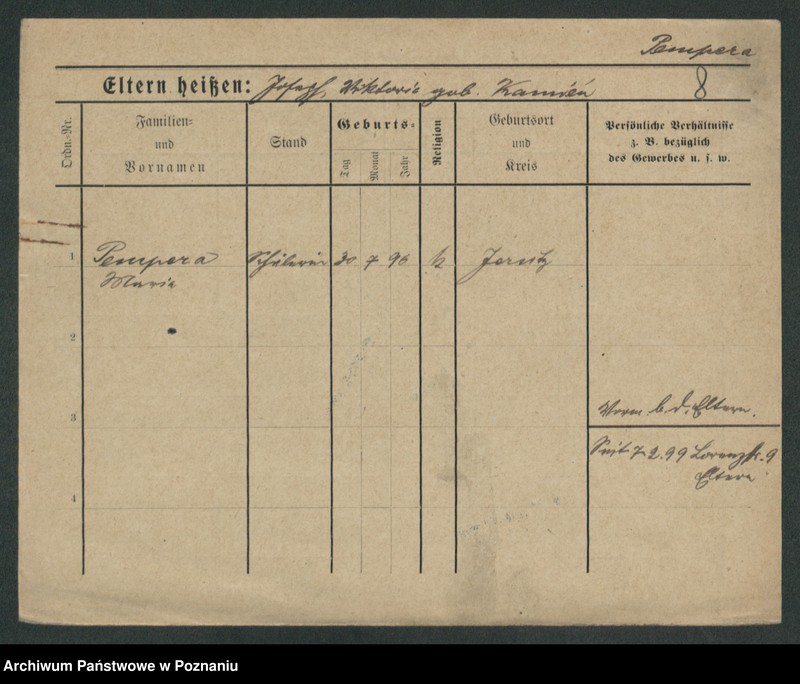 Pempera
Eltern heißen: Joseph, Viktoria geb. Kamień
8
Ordn.-Nr.
Familien-
und
Vornamen
Stand
Geburts-
Tag
Monat
Jahr
Religion
Geburtsort
und
Kreis
Persönliche Verhältnisse
z. B. bezüglich
des Gewerbes u. s. w.
1
Pempera
Maria
Schülerin
30
7
90
k
Jersitz
2
3
Worm. b. d. Eltern.
Seit 7.2.99 Lorenzstr. 9
Eltern
4
Archiwum Państwowe w Poznaniu